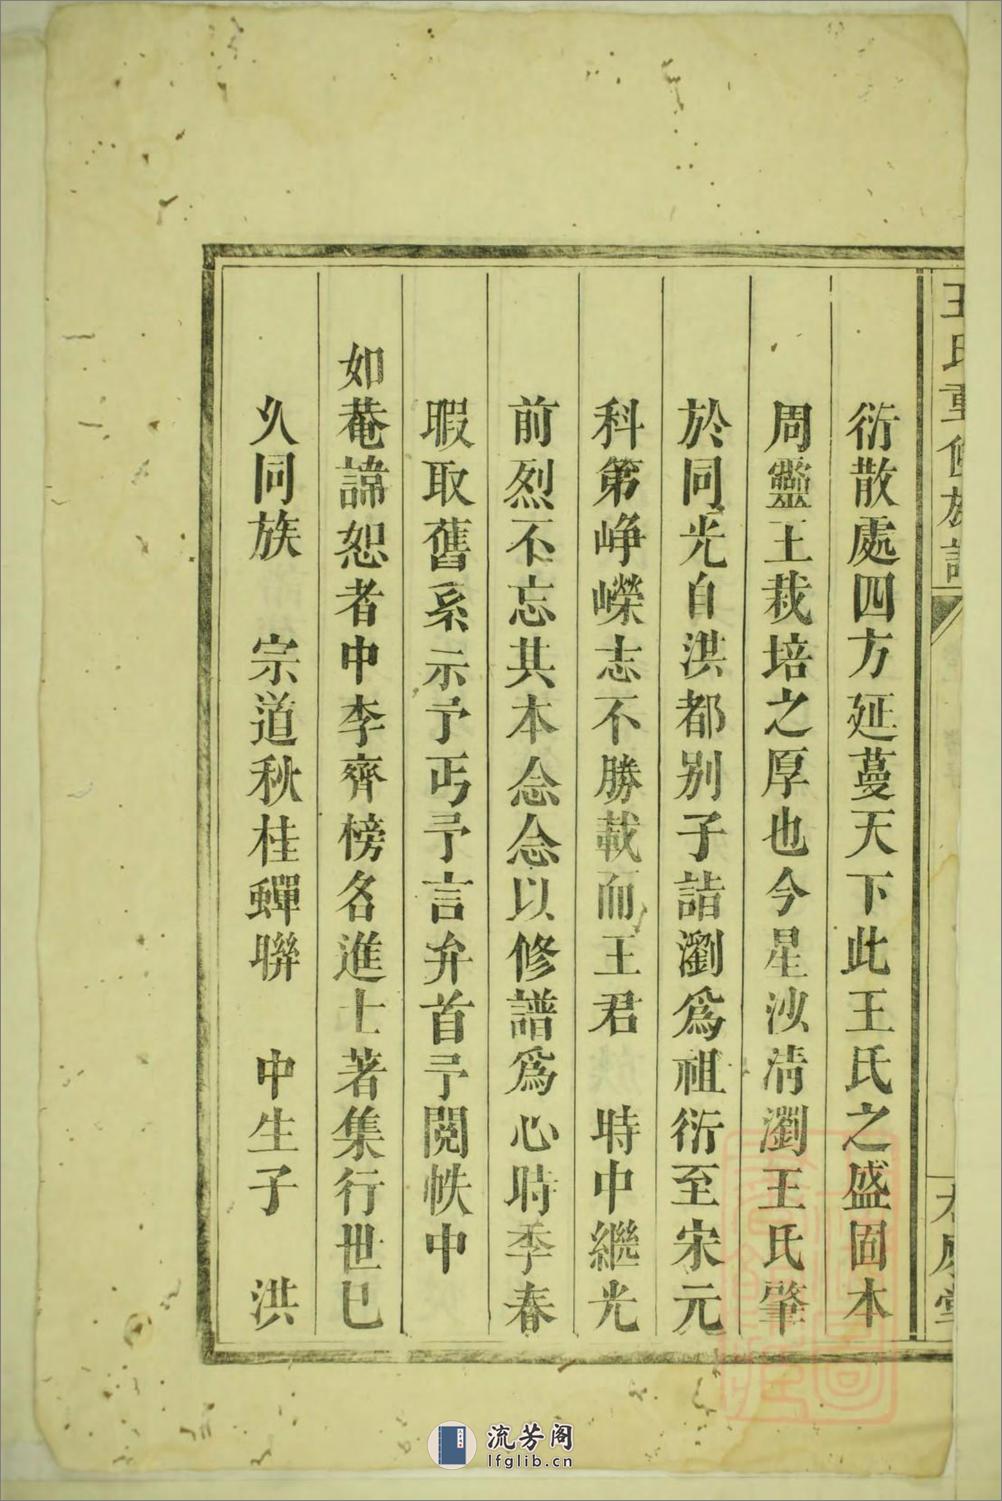 王氏重修族譜
衍散處四方延蔓天下此王氏之盛固本
周靈王栽培之厚也今星沙清瀏王氏肇
於同光自洪都別子詣瀏爲祖衍至宋元
科第崢嶸志不勝載而王君 時中繼光
前烈不忘其本念念以修譜爲心時季春
暇取舊系示予丐予言弁首予閱帙中
如菴諱恕者中李齊榜名進士著集行世已
久同族 宗道秋桂蟬聯 中生子 洪
流芳阁
lfglib.cn